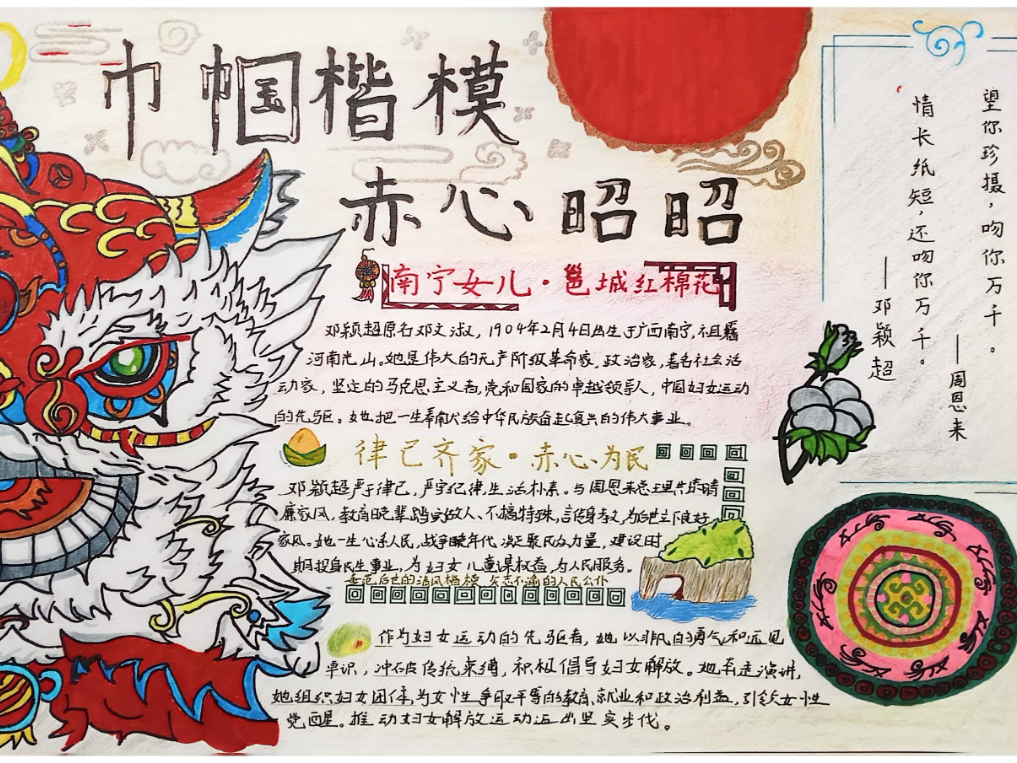 巾帼楷模
赤心昭昭
南宁女儿·邕城红棉花
邓颖超原名邓文淑，1904年2月4日出生于广西南宁，祖籍
河南光山。她是伟大的无产阶级革命家，政治家，著名社会活
动家，坚定的马克思主义者，党和国家的卓越领导人，中国妇女运动
的先驱。她把一生奉献给中华民族奋起复兴的伟大事业。
律己齐家·赤心为民
邓颖超严于律己，严守纪律，生活朴素。与周恩来总理共培清
廉家风，教育晚辈踏实做人、不搞特殊，言传身教，为后世立下良好
家风。她一生心系人民，战争年代凝聚民众力量，建设时
期投身民生事业，为妇女儿童谋权益，为人民服务。
垂范后世的清风楷模 矢志不渝的人民公仆
作为妇女运动的先驱者，她以非凡的勇气和远见
卓识，冲破传统束缚，积极倡导妇女解放。她奔走演讲，
她组织妇女团体，为女性争取平等的教育，就业和政治利益，引领女性
觉醒。推动妇女解放运动迈出坚实步伐。
望你珍摄，吻你万千。
——周恩来
情长纸短，还吻你万千。
——邓颖超